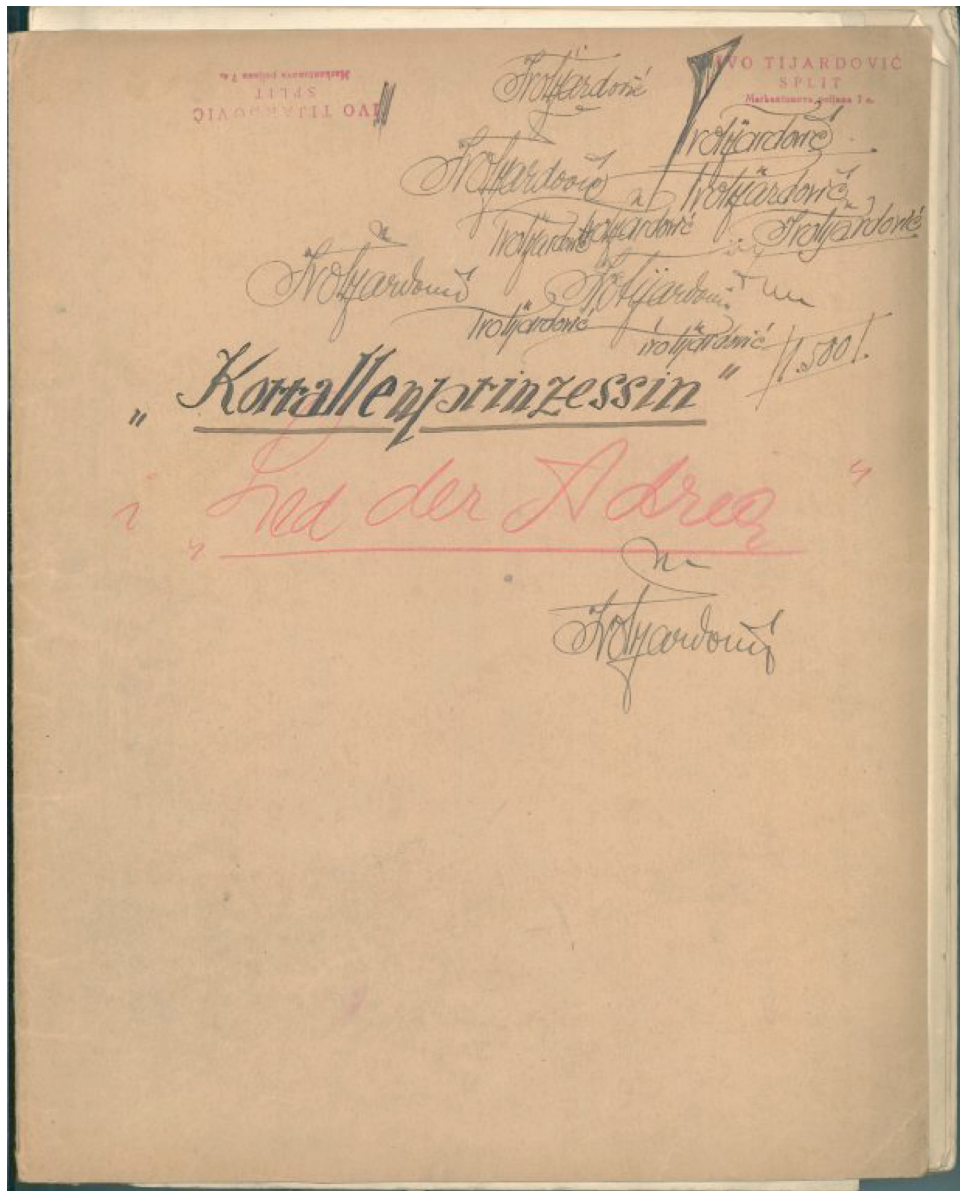 IVO TIJARDOVIĆ
SPLIT
Markantunova poljana 7 a.
IVO TIJARDOVIĆ
SPLIT
Markantunova poljana 7 a.
Ivo Tijardović
Ivo Tijardović
Ivo Tijardović
Ivo Tijardović
Ivo Tijardović
Ivo Tijardović
Ivo Tijardović
Ivo Tijardović
Ivo Tijardović
Ivo Tijardović
Ivo Tijardović
1.500
„Korrallenprinzessin"
i „Lied der Adrea"
Ivo Tijardović